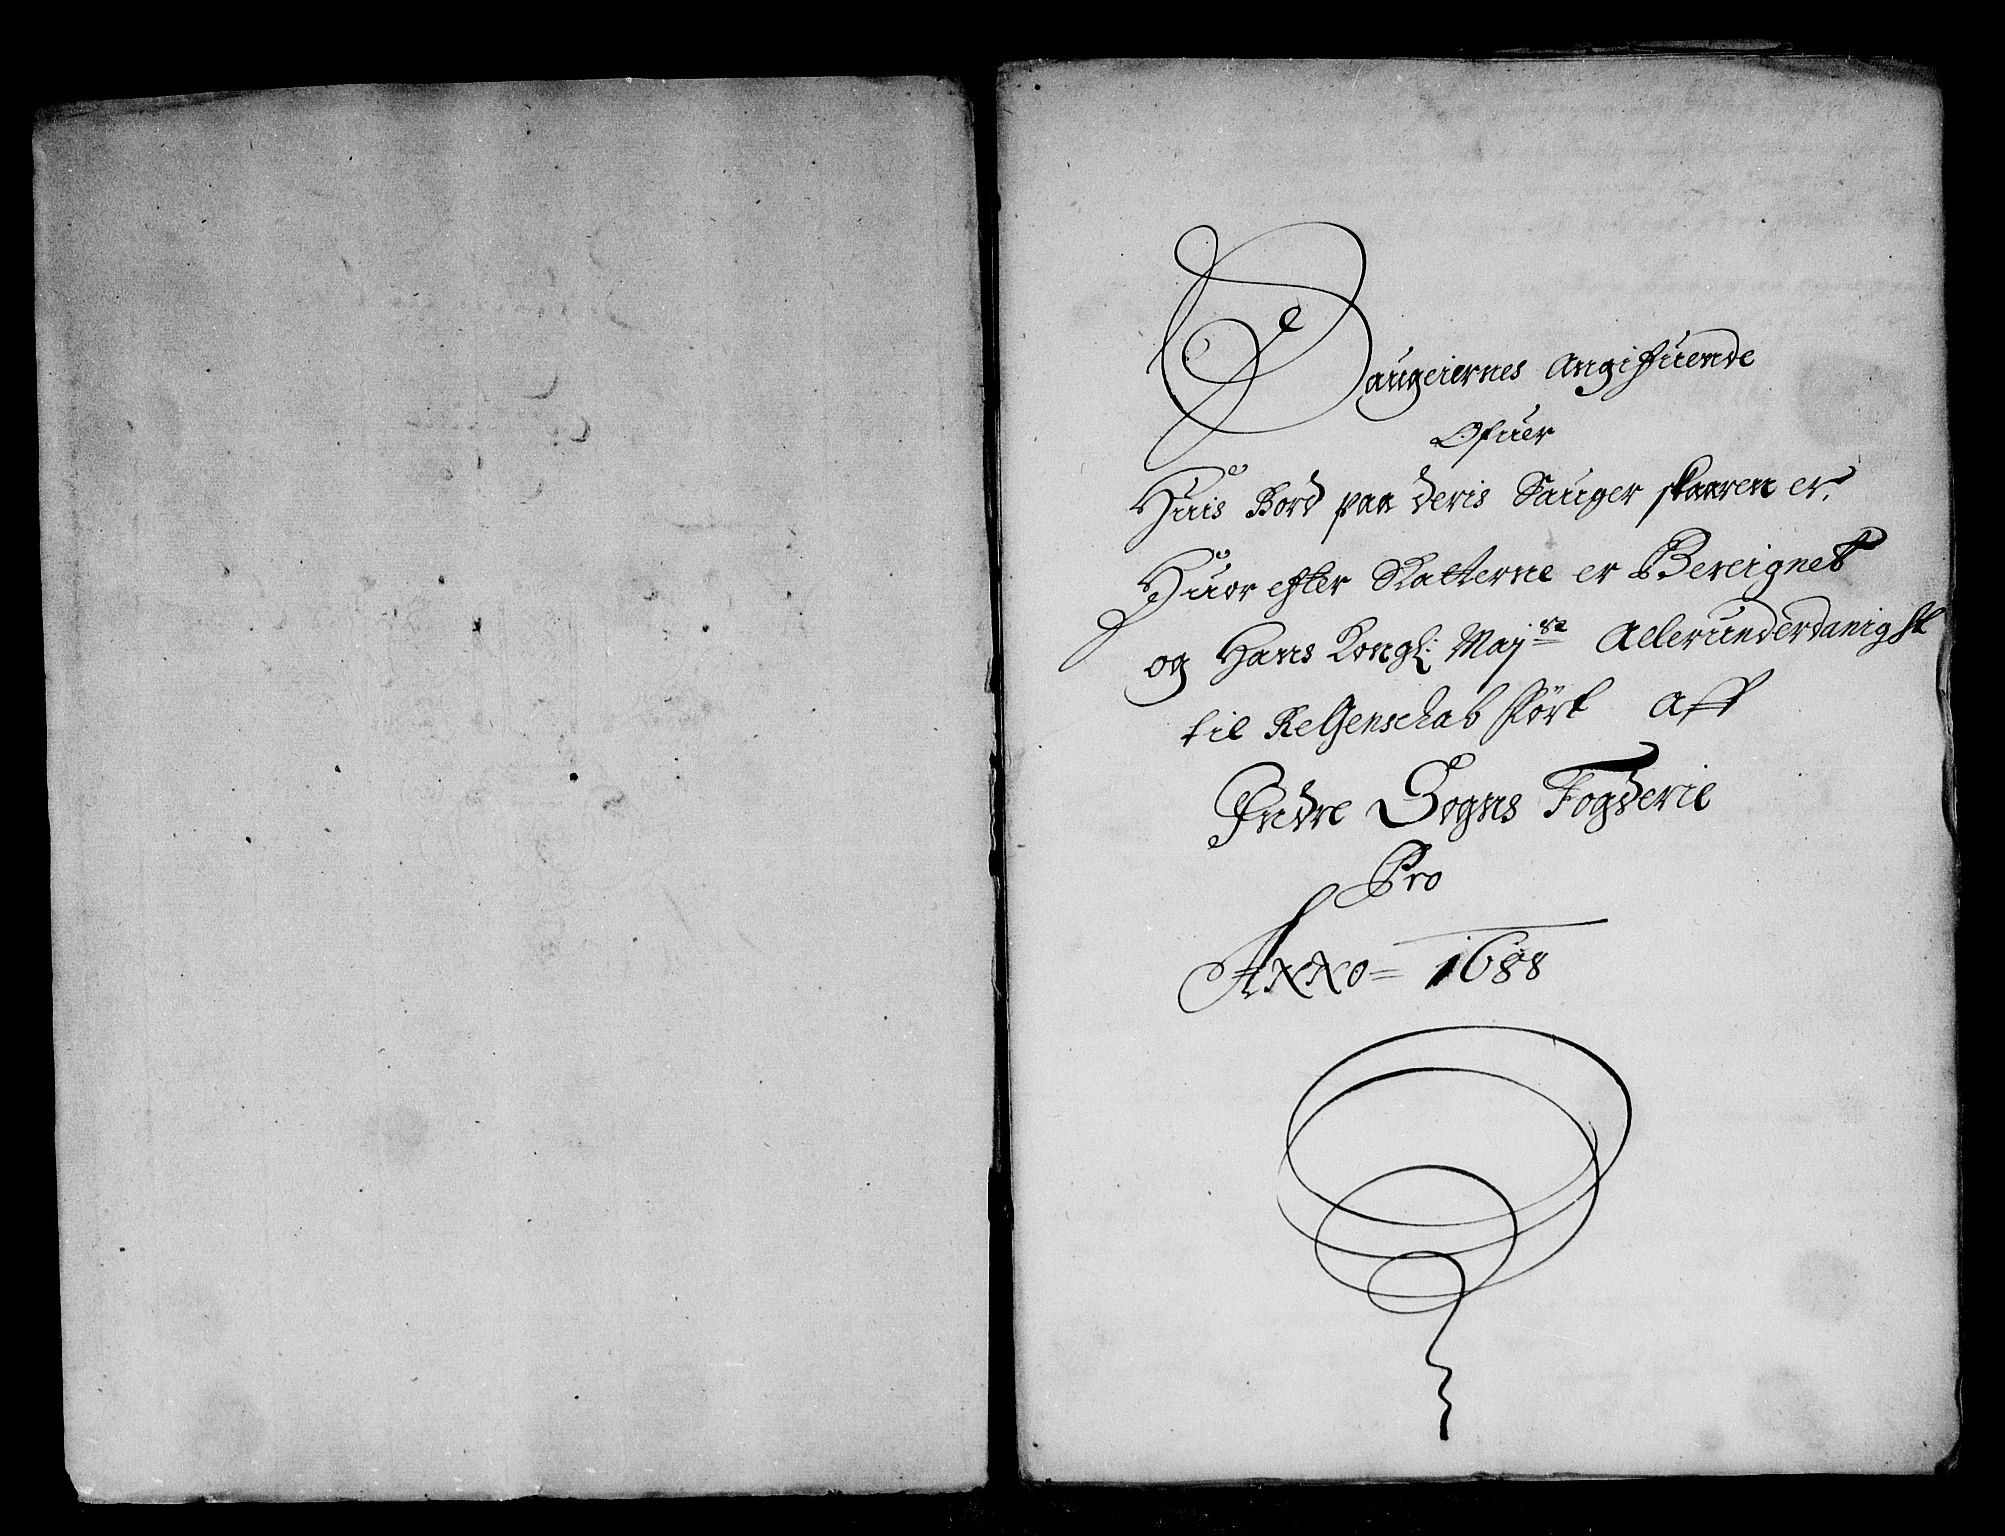 Saugeiernes Angifuende
Ofuer
Huis Bord paa deris Sauger skaaren er,
Huor efter Skatterne er Bereignet
og Hans Kongl: Maj:st Allerunderdanigst
til Regenschab fört Aff
Indre Sogns Fogderie
Pro
Anno = 1688